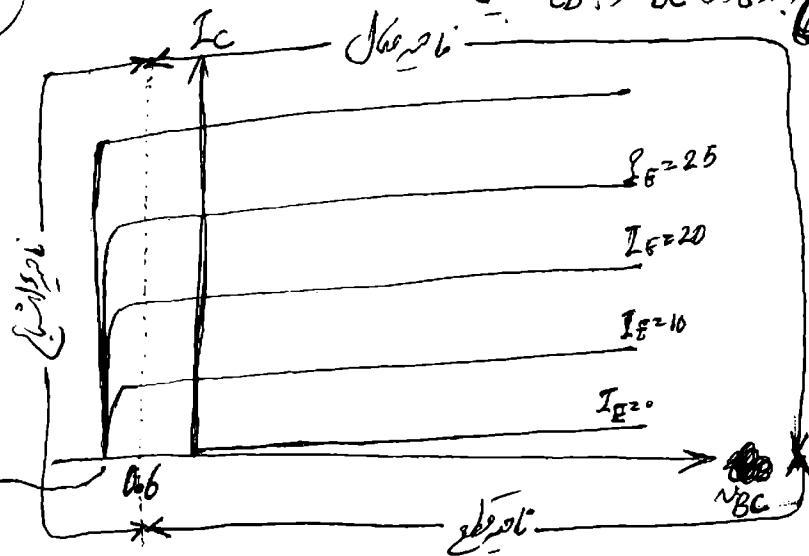 I_C
ناحیه فعال
I_E=25
I_E=20
I_E=10
I_E=0
ناحیه اشباع
0.6
V_BC
ناحیه قطع